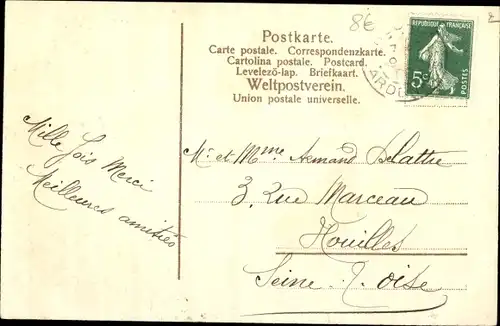 8€
Postkarte.
Carte postale. Correspondenzkarte.
Cartolina postale. Postcard.
Levelező-lap. Briefkaart.
Weltpostverein.
Union postale universelle.
REPUBLIQUE FRANÇAISE
5c
Mille fois Merci
Meilleures amitiés
Mr et Mme Armand Delattre
3, Rue Marceau
Houilles
Seine & Oise